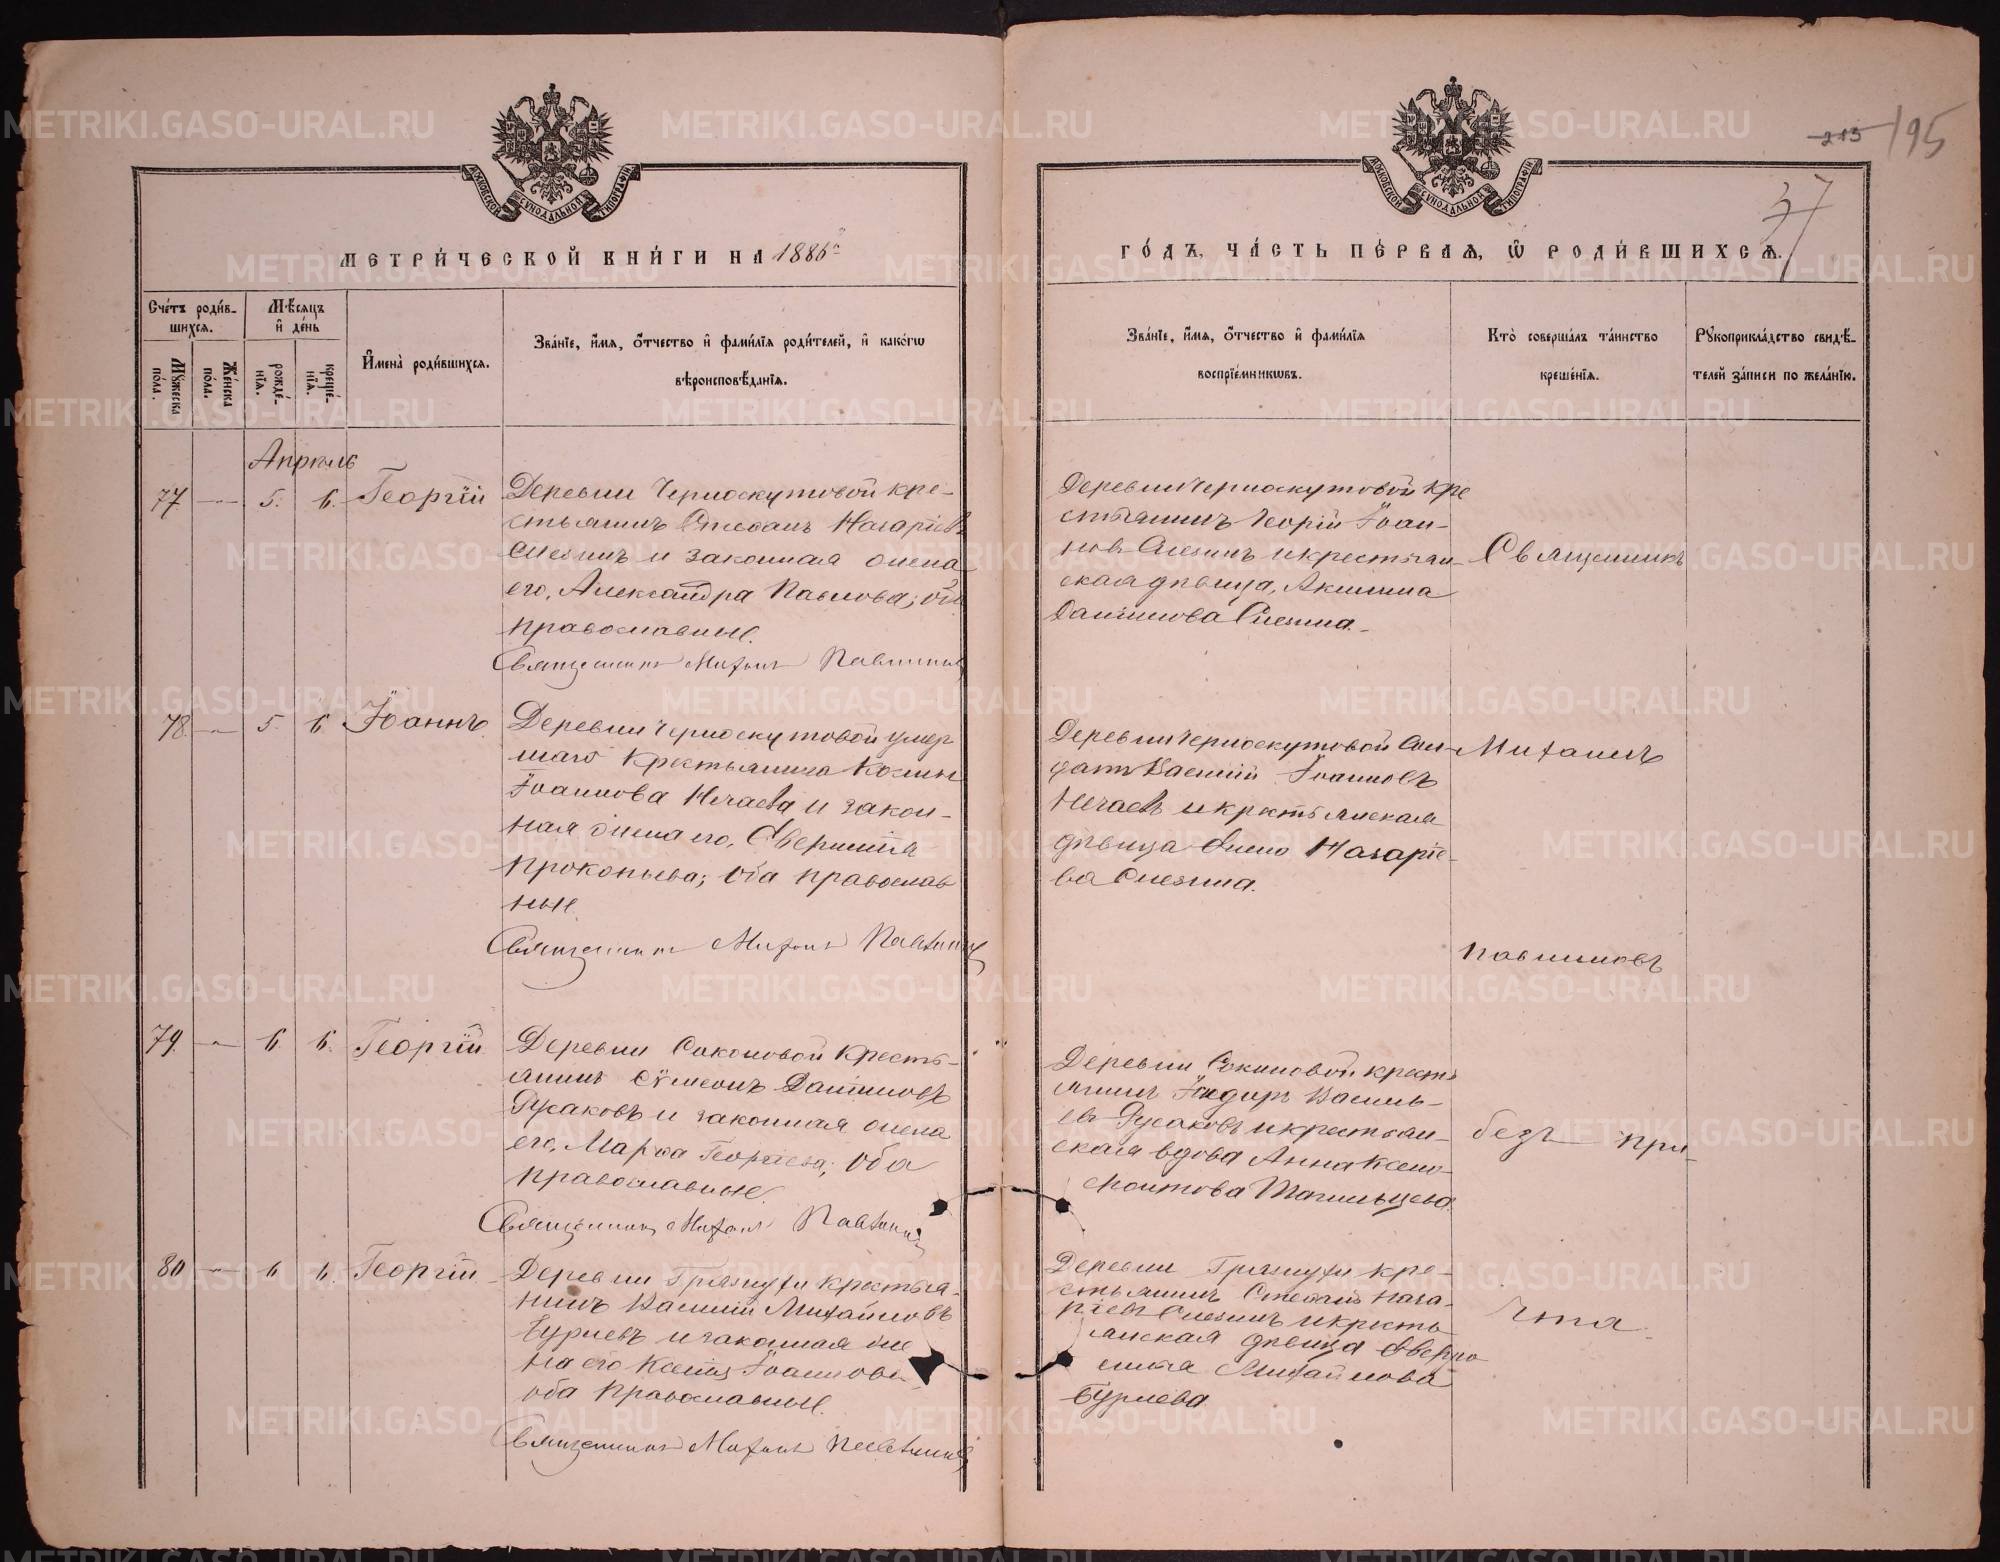 213 195
37
МОСКОВСКОЙ СѴНОДАЛЬНОЙ ТИПОГРАФІИ
МОСКОВСКОЙ СѴНОДАЛЬНОЙ ТИПОГРАФІИ
МЕТРИ́ЧЕСКОЙ КНИ́ГИ НА 1886 й
ГО́ДЪ, ЧА́СТЬ ПЕ́РВАЯ, Ѿ РОДИ́ВШИХСЯ.
Сче́тъ роди́в-
шихся.
Мꙋжеска по́ла.
Же́нска по́ла.
Мѣ́сяцъ
и҆ де́нь
рожде́-
нїя.
креще́-
нїя.
И҆мена̀ роди́вшихся.
Зва́нїе, и҆́мя, ѻ҆́тчество и҆ фами́лїя роди́телей, и҆ како́гѡ
вѣроисповѣ́данїя.
Зва́нїе, и҆́мя, ѻ҆́тчество и҆ фами́лїя
воспрїе́мникѡвъ.
Кто̀ соверша́лъ та́инство
креще́нїя.
Рꙋкоприкла́дство свидѣ́-
телей за́писи по жела́нїю.
Апрѣль
77 5. 6. Георгій
Деревни Черноскутовой кре-
стьянинъ Стефанъ Назаріевъ
Слезинъ и законная жена
его, Александра Павлова; оба
православные.
Священникъ Михаилъ Павлиновъ
Деревни Черноскутовой кре
стьянинъ Георгій Іоан-
новъ Слезинъ и крестьян-
ская дѣвица, Акилина
Даніилова Слезина.
Священникъ
78 5. 6. Іоаннъ
Деревни Черноскутовой умер
шаго крестьянина Косьмы
Іоаннова Нечаева и закон-
ная жена его,
Прокопьева; оба православ
ные.
Священникъ Михаилъ Павлиновъ
Деревни Черноскутовой Сол-
датъ Василій Іоанновъ
Нечаевъ и крестьянская
дѣвица Назаріе-
ва Слезина.
Михаилъ
Павлиновъ
79 6. 6. Георгій
Деревни Соколовой кресть-
янинъ Сѵмеонъ Даніиловъ
Русаковъ и законная жена
его, Марѳа Георгіева; оба
православные.
Священникъ Михаилъ Павлиновъ
Деревни Соколовой кресть
янинъ Василь-
евъ Русаковъ и крестьян-
ская вдова Анна Ксено-
фонтова Тагильцева
безъ при-
80 6 6. Георгій
Деревни Грязнухи крестья-
нинъ Василій Михайловъ
Бурлевъ и законная же
на его Ксенія Іоаннова
оба православные.
Священникъ Михаилъ Павлиновъ
Деревни Грязнухи кре-
стьянинъ Стефанъ Наза-
ріевъ Слезинъ и кресть
янская дѣвица Февро-
нія Михайлова
Бурлева
чта.